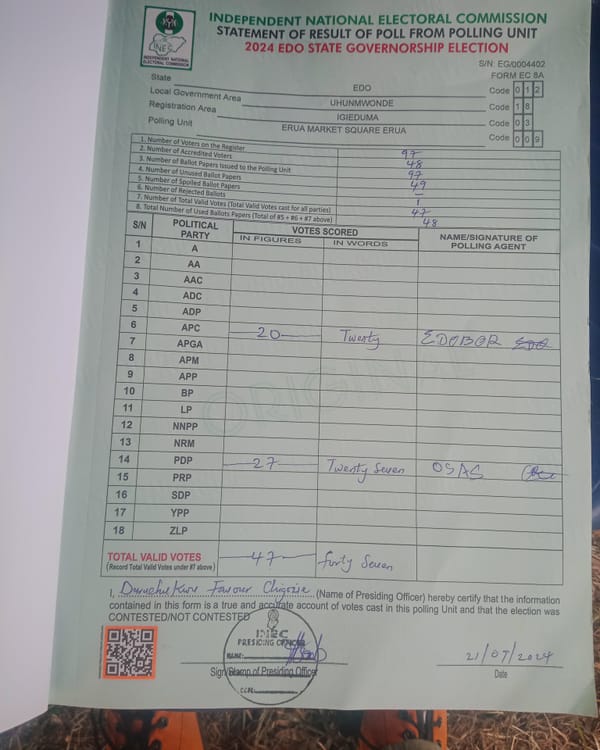 INDEPENDENT NATIONAL ELECTORAL COMMISSION
STATEMENT OF RESULT OF POLL FROM POLLING UNIT
2024 EDO STATE GOVERNORSHIP ELECTION
INEC
INDEPENDENT NATIONAL ELECTORAL COMMISSION
S/N: EG/0004402
FORM EC 8A
State EDO Code 0 1 2
Local Government Area UHUNMWONDE Code 1 8
Registration Area IGIEDUMA Code 0 3
Polling Unit ERUA MARKET SQUARE ERUA Code 0 0 9
1. Number of Voters on the Register 97
2. Number of Accredited Voters 48
3. Number of Ballot Papers Issued to the Polling Unit 97
4. Number of Unused Ballot Papers 49
5. Number of Spoiled Ballot Papers -
6. Number of Rejected Ballots 1
7. Number of Total Valid Votes (Total Valid Votes cast for all parties) 47
8. Total Number of Used Ballots Papers (Total of #5 + #6 + #7 above) 48
S/N POLITICAL PARTY VOTES SCORED NAME/SIGNATURE OF POLLING AGENT
IN FIGURES IN WORDS
1 A
2 AA
3 AAC
4 ADC
5 ADP
6 APC 20 Twenty EDOBOR
7 APGA
8 APM
9 APP
10 BP
11 LP
12 NNPP
13 NRM
14 PDP 27 Twenty Seven OSAS
15 PRP
16 SDP
17 YPP
18 ZLP
ORIGINAL
TOTAL VALID VOTES 47 forty Seven
(Record Total Valid Votes under #7 above)
I, Favour Chigozie (Name of Presiding Officer) hereby certify that the information
contained in this form is a true and accurate account of votes cast in this polling Unit and that the election was
CONTESTED/NOT CONTESTED
INEC
PRESIDING OFFICER
NAME:
Sign/Stamp of Presiding Officer
21/07/2024
Date